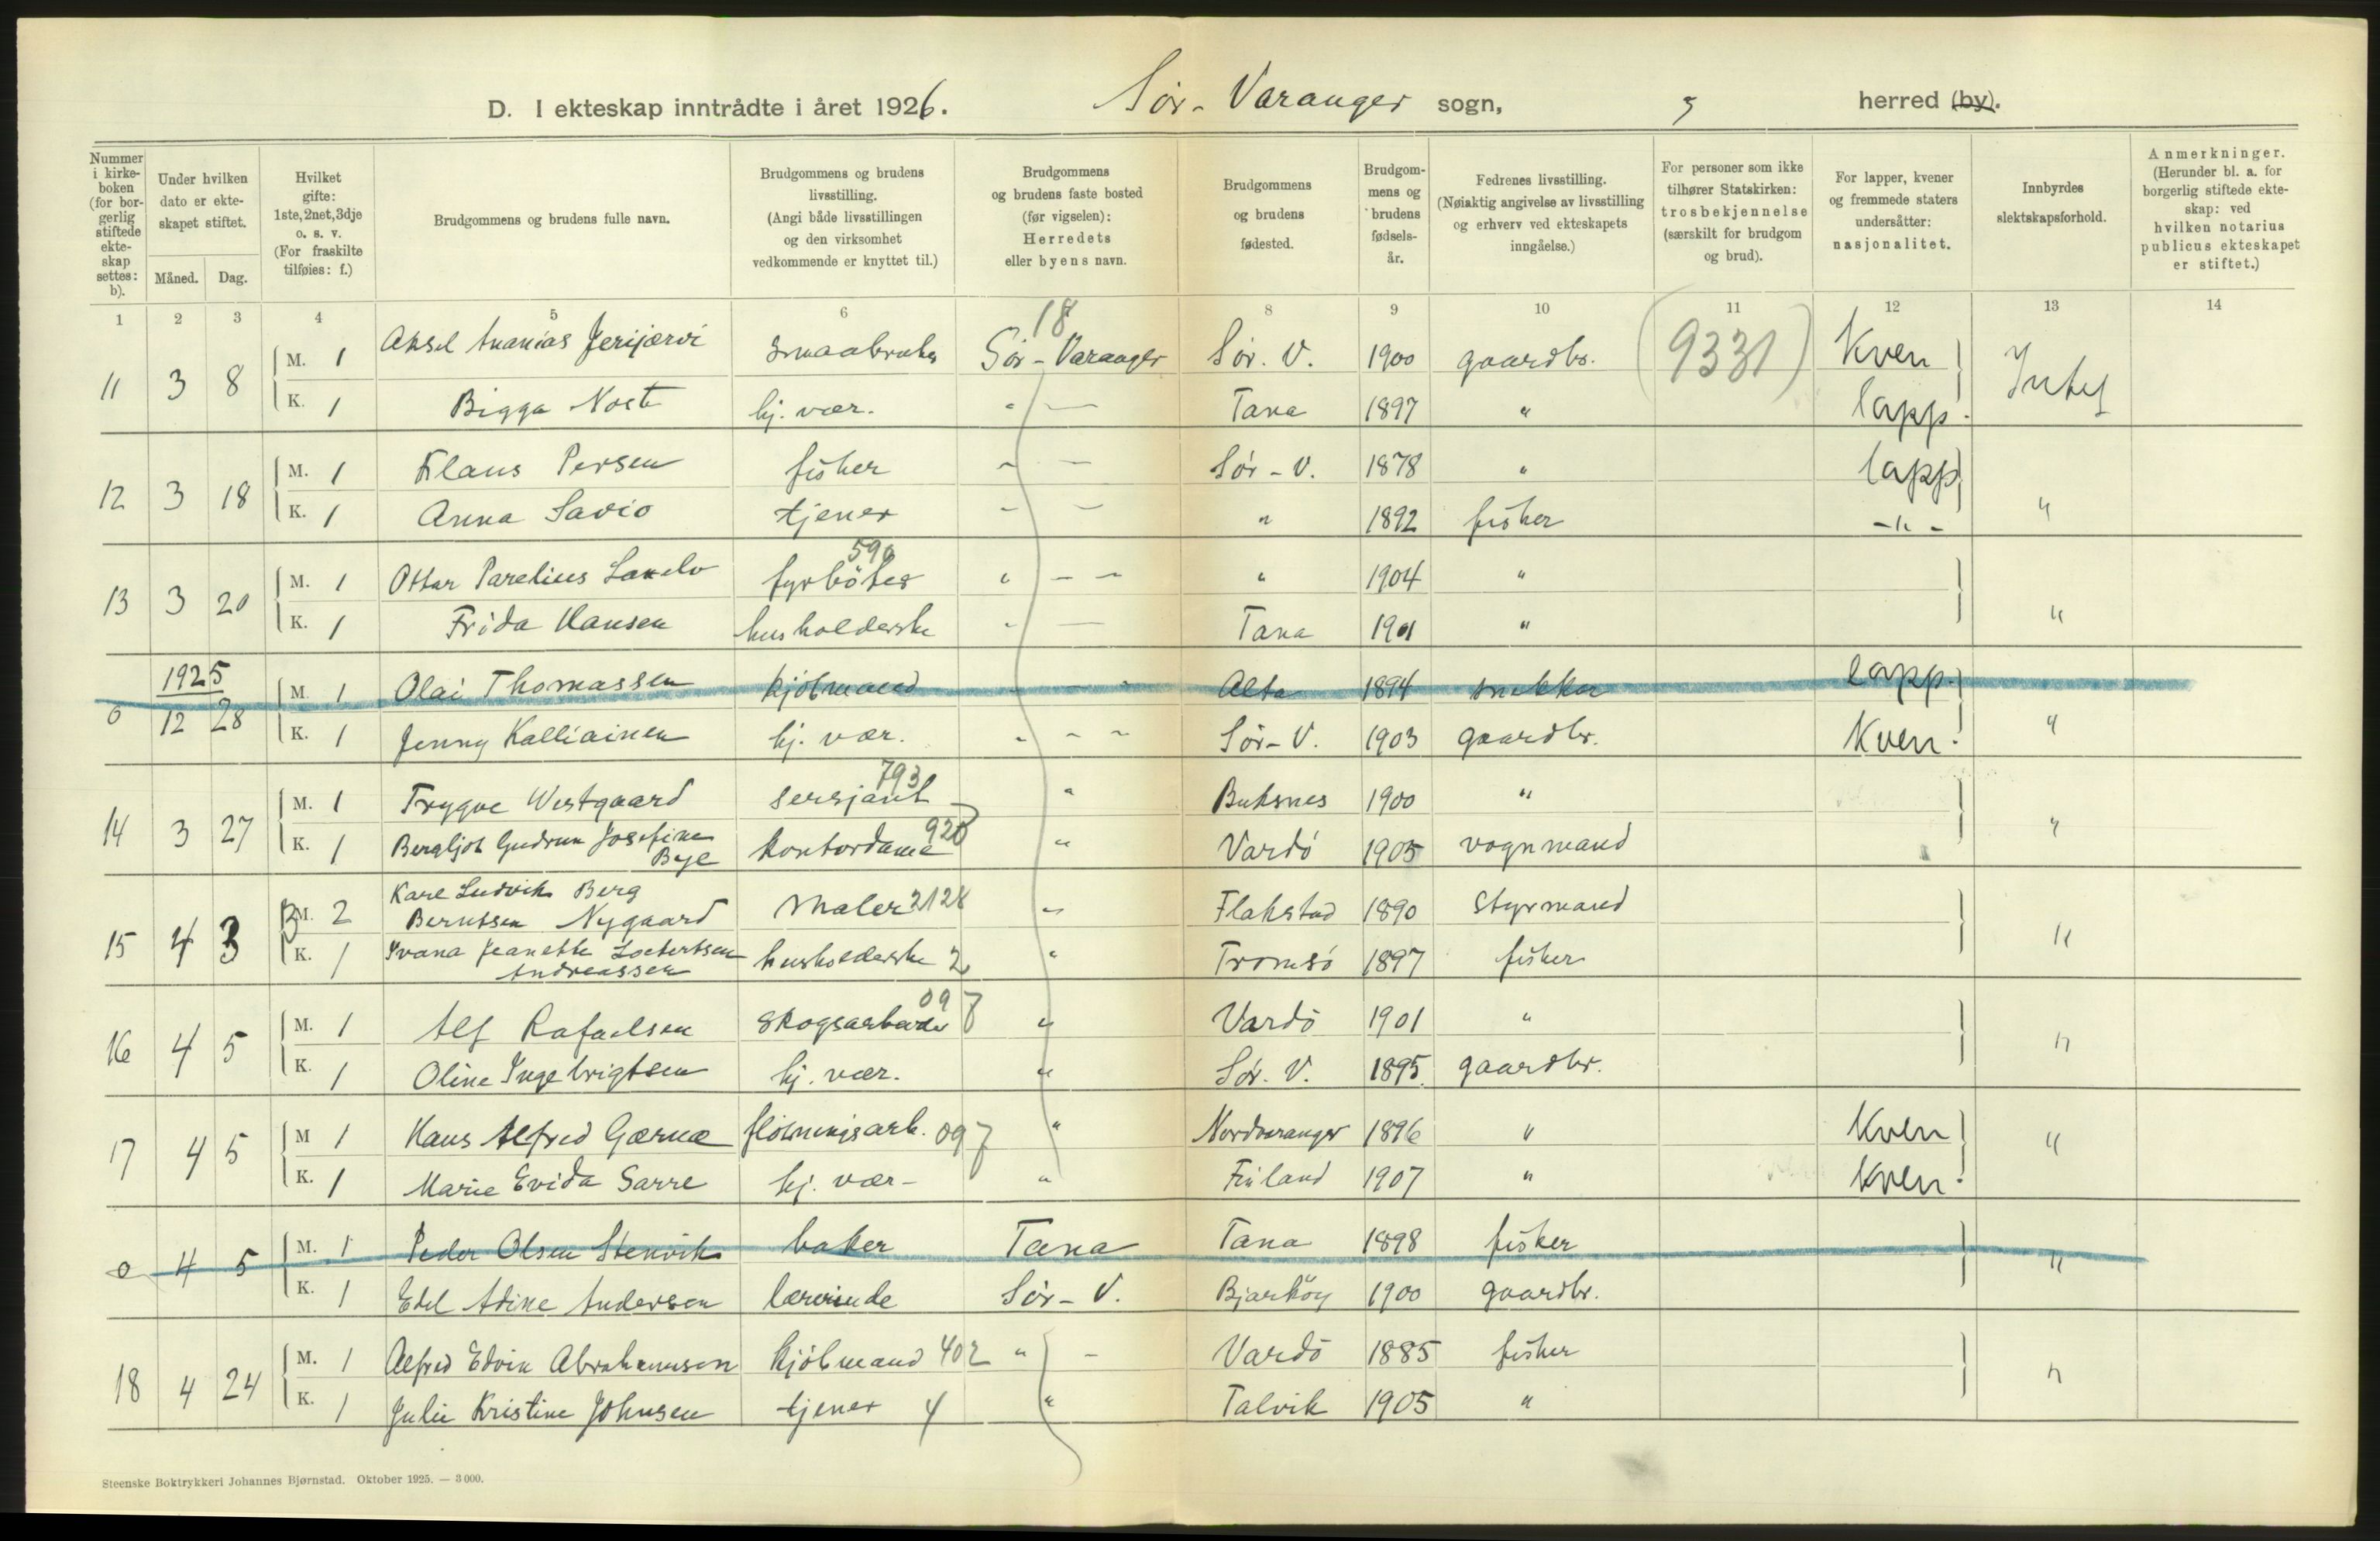 D. I ekteskap inntrådte i året 1926. Sør-Varanger sogn, " herred (by).
Nummer i kirkeboken (for borgerlig stiftede ekteskap settes: b).
Under hvilken dato er ekteskapet stiftet.
Måned. Dag.
Hvilket gifte: 1ste, 2net, 3dje o. s. v. (For fraskilte tilføies: f.)
Brudgommens og brudens fulle navn.
Brudgommens og brudens livsstilling. (Angi både livsstillingen og den virksomhet vedkommende er knyttet til.)
Brudgommens og brudens faste bosted (før vigselen): Herredets eller byens navn.
Brudgommens og brudens fødested.
Brudgommens og brudens fødselsår.
Fedrenes livsstilling. (Nøiaktig angivelse av livsstilling og erhverv ved ekteskapets inngåelse.)
For personer som ikke tilhører Statskirken: trosbekjennelse (særskilt for brudgom og brud).
For lapper, kvener og fremmede staters undersåtter: nasjonalitet.
Innbyrdes slektskapsforhold.
Anmerkninger. (Herunder bl. a. for borgerlig stiftede ekteskap: ved hvilken notarius publicus ekteskapet er stiftet.)
1 2 3 4 5 6 8 9 10 11 12 13 14
18 (9331)
11 3 8 M. 1 Aksel Ananias Jerijærvi smaabruker Sør-Varanger Sør. V. 1900 gaardbr. Kven Intet
K. 1 Bigga Noste hj. vær. " — Tana 1897 " lapp.
12 3 18 M. 1 Klaus Persen fisker " — Sør-V. 1878 " lapp "
K. 1 Anna Savio tjener " — " 1892 fisker -"-
590
13 3 20 M. 1 Ottar Parelius fyrböter " — " 1904 " "
K. 1 Frida Hansen husholderske " — Tana 1901 "
1925
0 12 28 M. 1 Olai Thomassen kjölmand " - " Alta 1894 snekker lapp. "
K. 1 Jenny Kalliainen hj. vær. " - " Sør-V. 1903 gaardbr. Kven.
793
14 3 27 M. 1 Trygve Westgaard sersjant " Buksnes 1900 " "
920
K. 1 Bergljot Gudrun Josefine Bye kontordame " Vardö 1905 vognmand
15 4 3 M. 2 Karl Ludvik Berg Berntsen Nygaard Maler 3128 " Flakstad 1890 Styrmand "
K. 1 Ivana Jeanette Andreassen husholderske 2 " Tromsö 1897 fisker
097
16 4 5 M. 1 Alf Rafaelsen Skogsarbeider " Vardö 1901 " "
K. 1 Oline Ingebrigtsen hj. vær. " Sör. V. 1895 gaardbr.
17 4 5 M 1 Hans Alfred Gærnæ flötningsarb. 097 " Nordvaranger 1896 " Kven "
K. 1 Marie Evida Sarre hj. vær- " Finland 1907 " Kven.
0 4 5 M. 1 Peder Olsen Stenvik baker Tana Tana 1898 fisker "
K. 1 Edel Adine Andersen lærerinde Sör-V. Bjarköy 1900 gaardbr.
18 4 24 M. 1 Alfred Edvin Abrahamsen kjölmand 402 " - Vardö 1885 fisker "
K. 1 Julie Kristine Johnsen tjener 4 " Talvik 1905 "
Steenske Boktrykkeri Johannes Bjørnstad. Oktober 1925. — 3000.